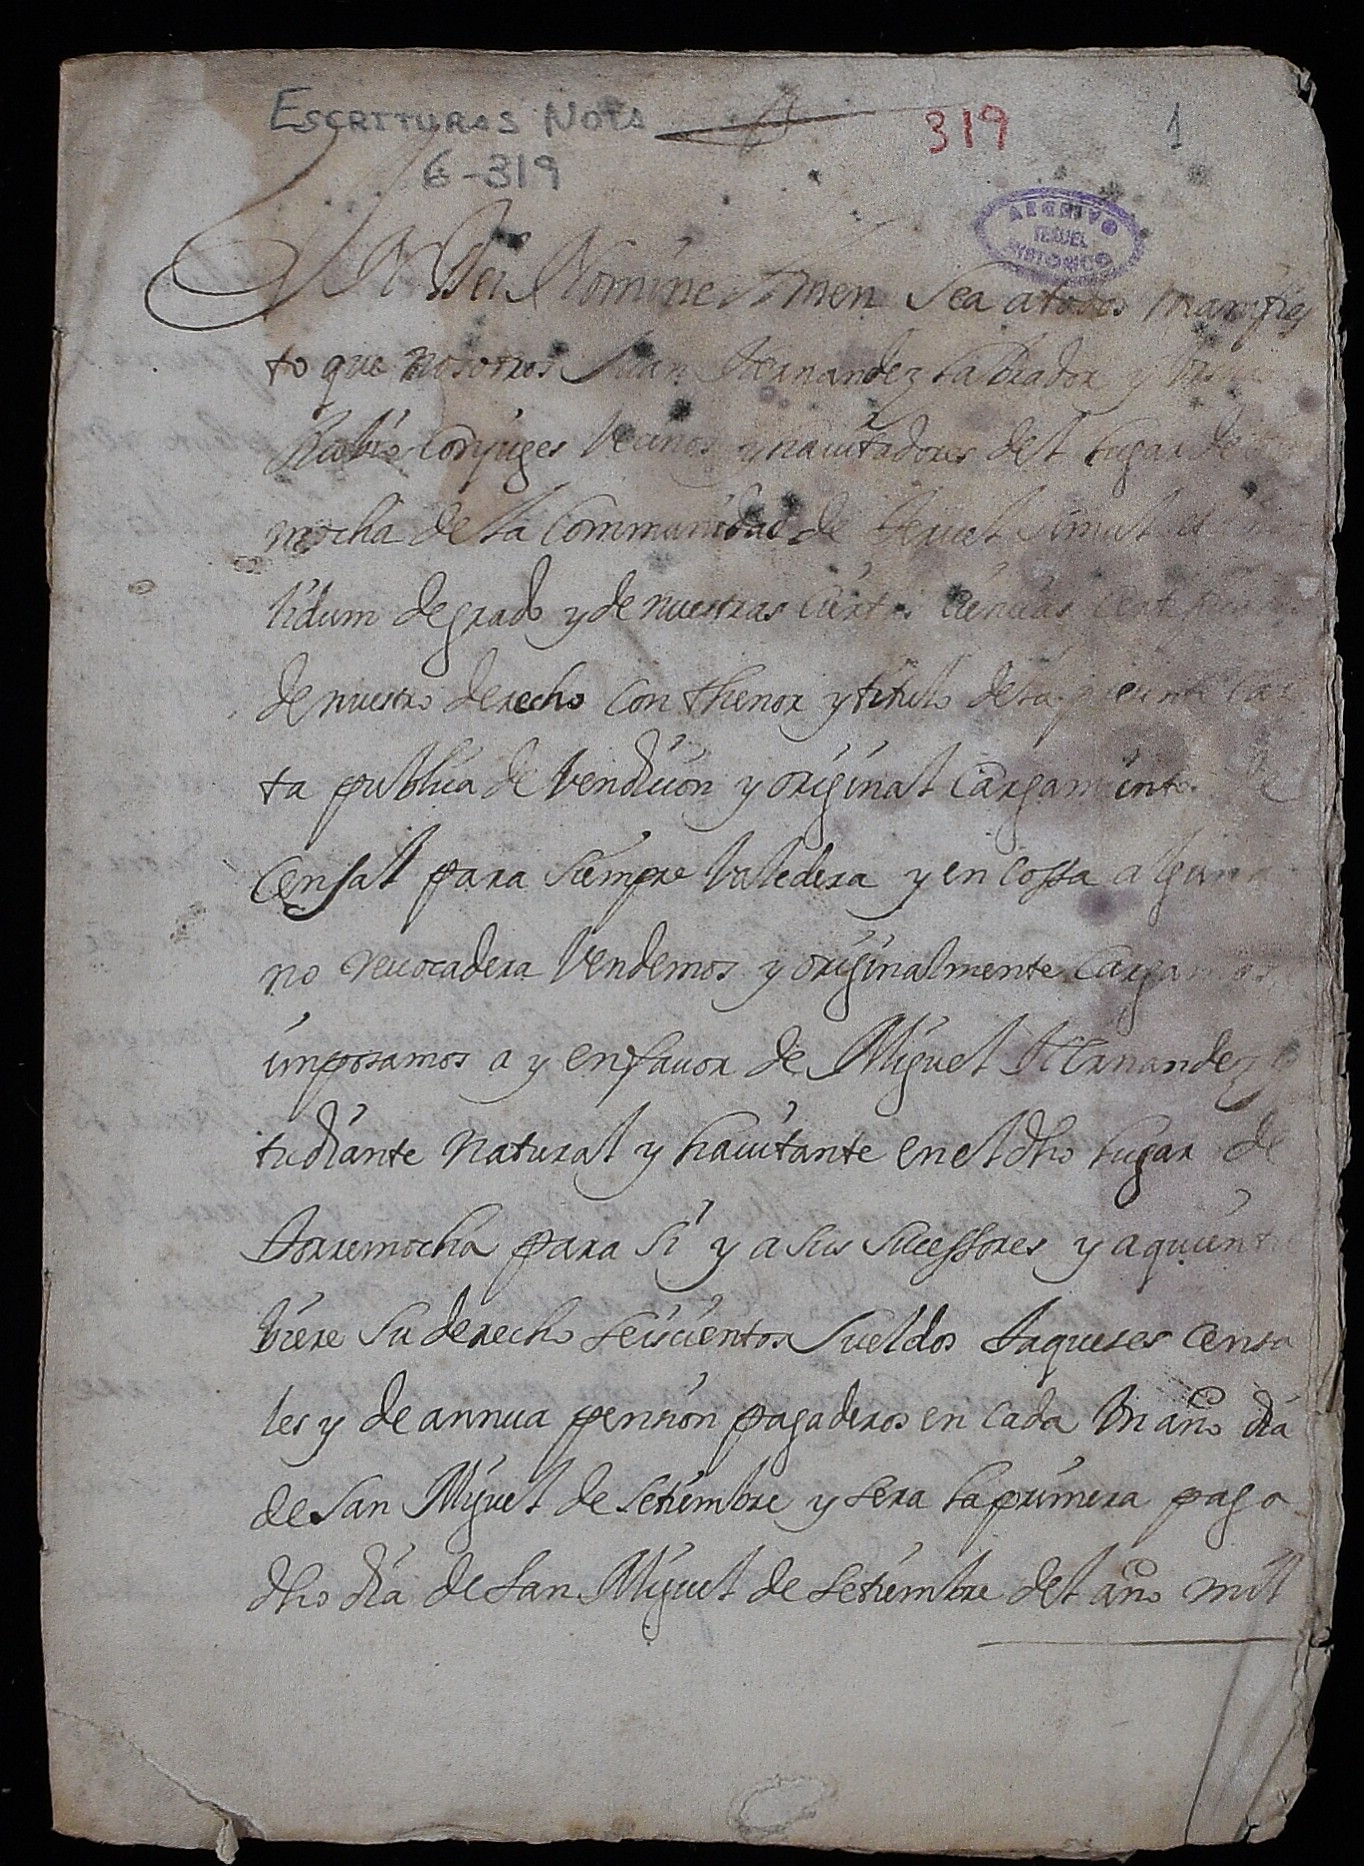 ESCRITURAS NOTS
6-319
319
1
ARCHIVO
TERUEL
HISTORICO
In Dei Nomine Amen Sea atodos manifies
to que nosotros Juan Hernandez labrador y
Rubio Conjuges Vecinos y hauitadores del lugar de
mocha de la Communidad de Teruel simul et
lidum de grado y de nuestras ciertas ciencias certificados
de nuestro derecho con thenor y titulo de la presente car
ta publica de Vendicion y original Cargamiento de
Censal para siempre Valedera y en cossa alguna
no reuocadera Vendemos y originalmente Cargamos,
imposamos a y en fauor de Miguel Hernandez es
tudiante natural y hauitante en el dho lugar de
Torremocha para si y a sus sucessores y a quien tu
biere su derecho seiscientos sueldos Jaqueses censa
les y de annua pension pagaderos en cada Un año dia
de San Miguel de Setiembre y sera la primera paga
dho dia de San Miguel de Setiembre del año mil